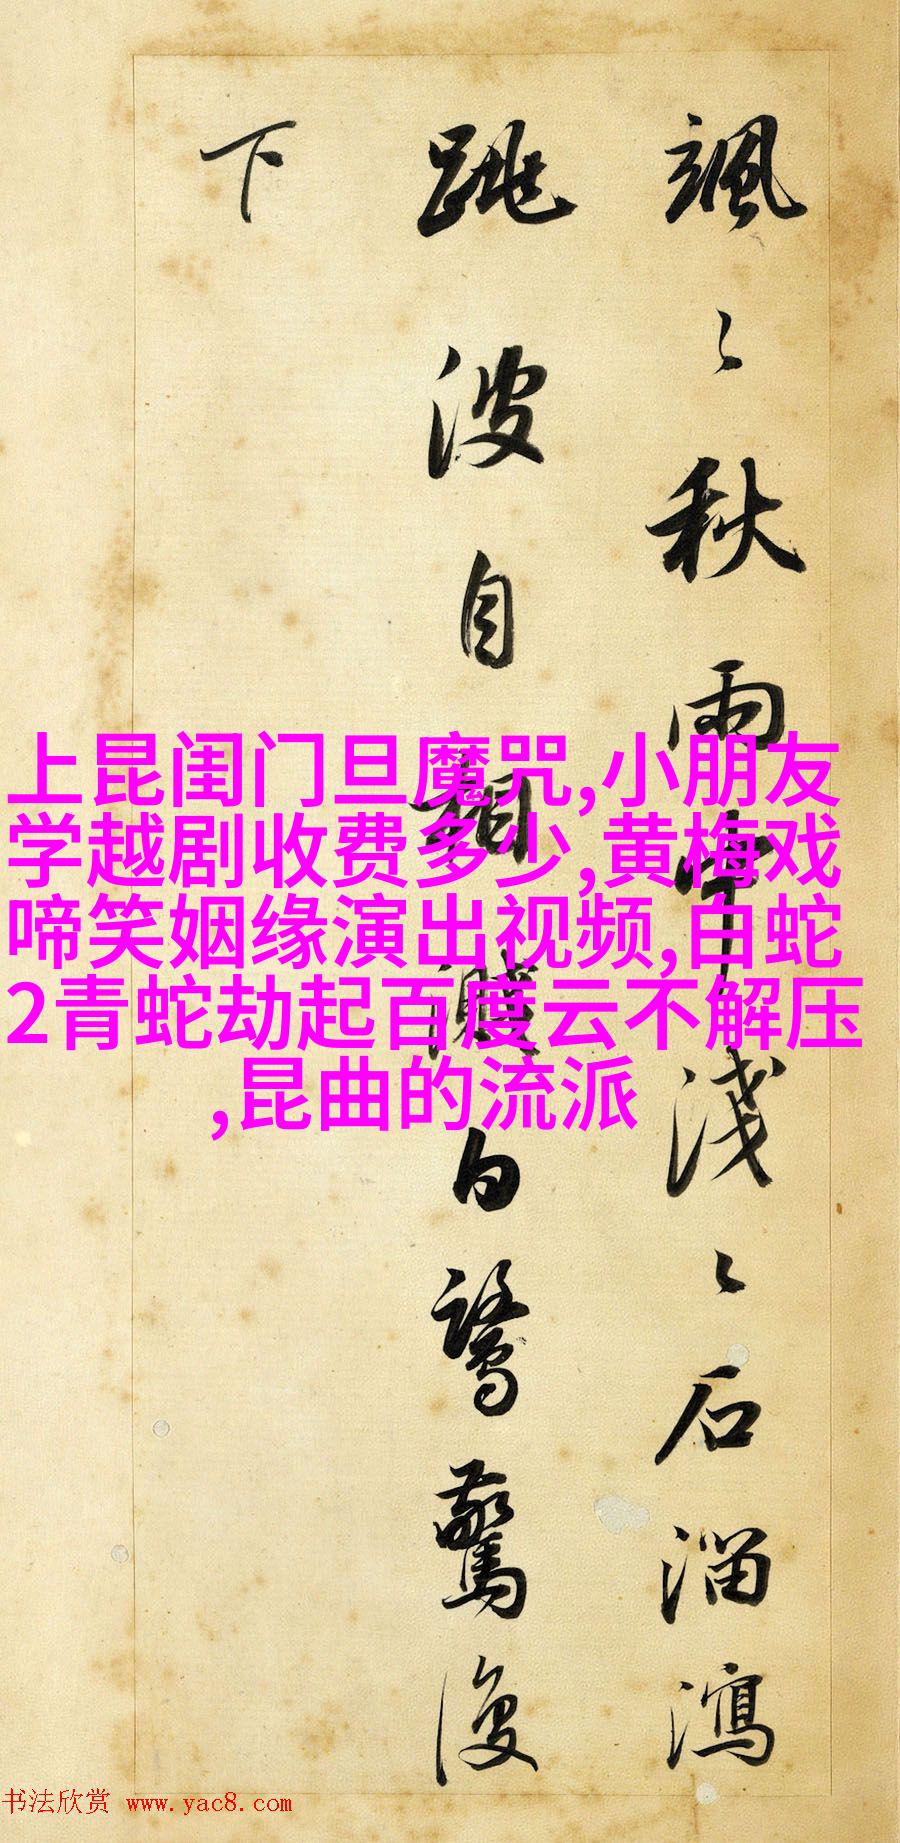 颯〻秋雨中淺〻石溜瀉
跳波自相濺白鷺驚復
下
上昆闺门旦魔咒,小朋友
学越剧收费多少,黄梅戏
啼笑姻缘演出视频,白蛇
2青蛇劫起百度云不解压
,昆曲的流派
书法欣赏 www.yac8.com